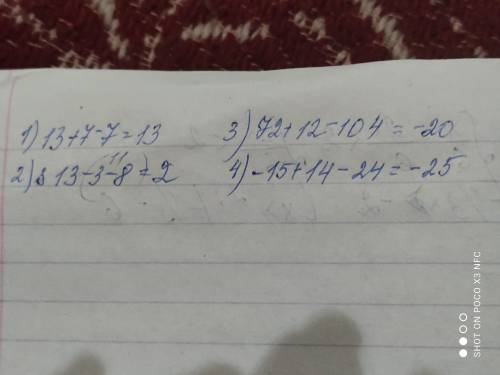 1) 13+7-7=13 3) 72+12-104=-20
2) 13-3-8=2 4) -15+14-24=-25
11
SHOT ON POCO X3 NFC